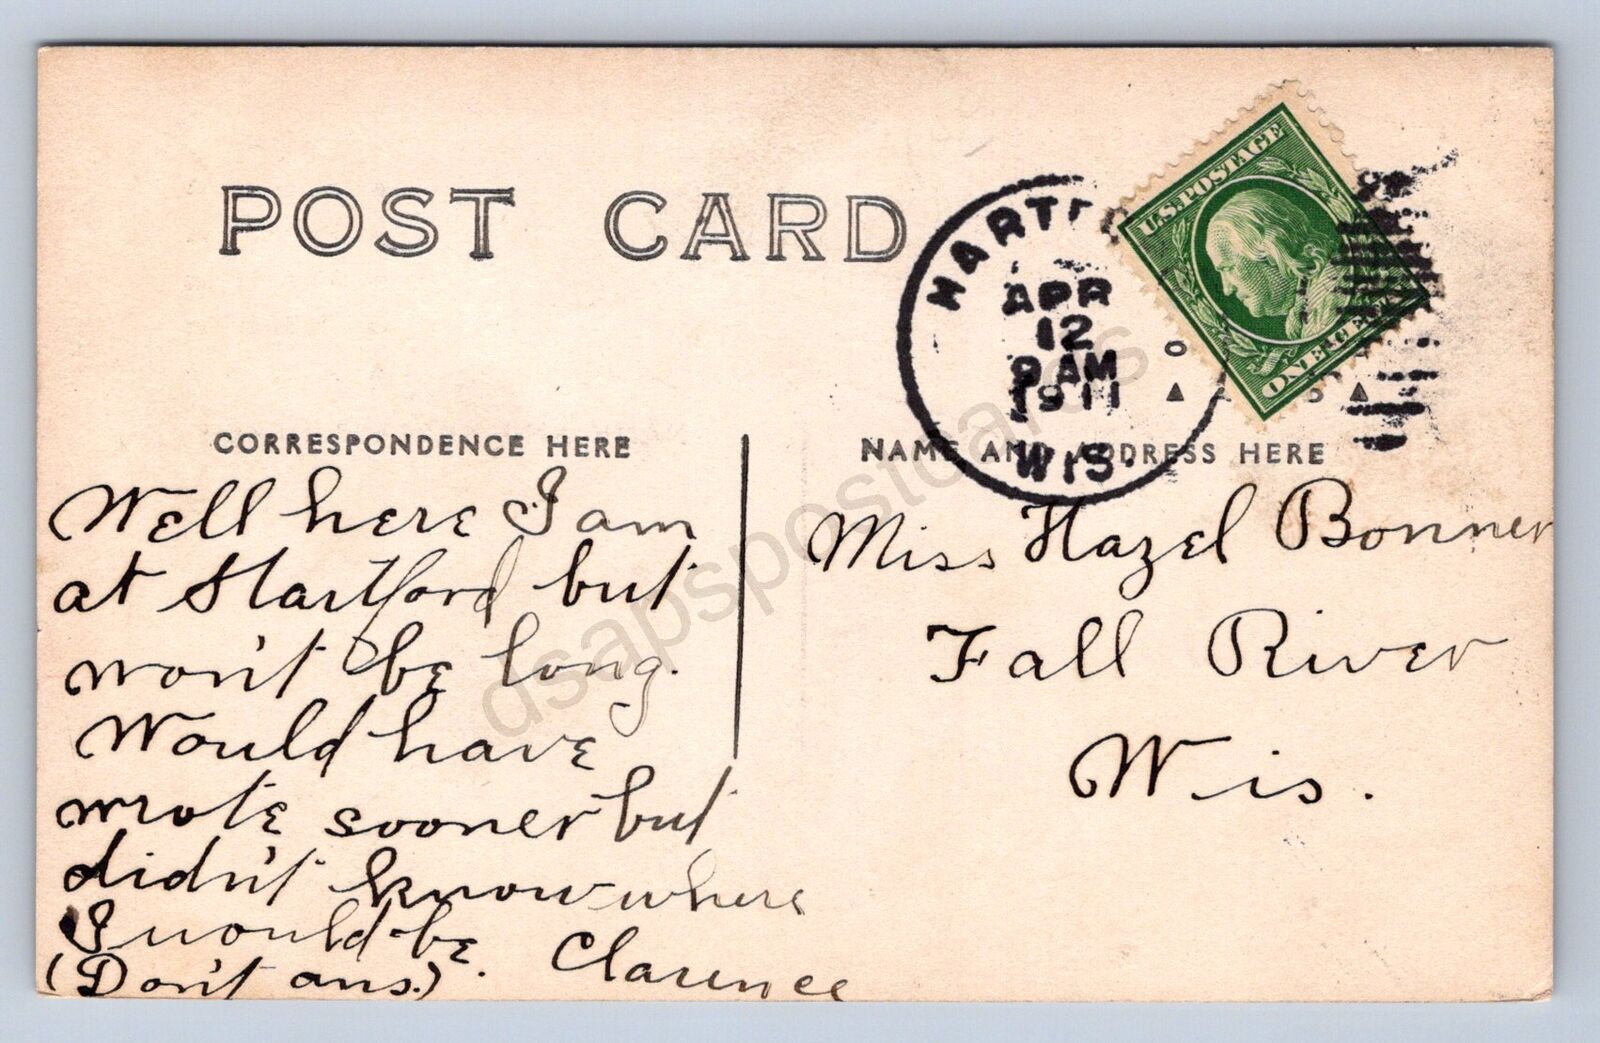 POST CARD
HARTF
APR
12
9 AM
1911
WIS.
U.S. POSTAGE
ONE CE
CORRESPONDENCE HERE
NAME AND ADDRESS HERE
Well here I am
at Hartford but
won't be long.
Would have
wrote sooner but
didn't know where
I would be.
(Don't ans.)
Clarence
Miss Hazel Bonner
Fall River
Wis.
dsapspostcards